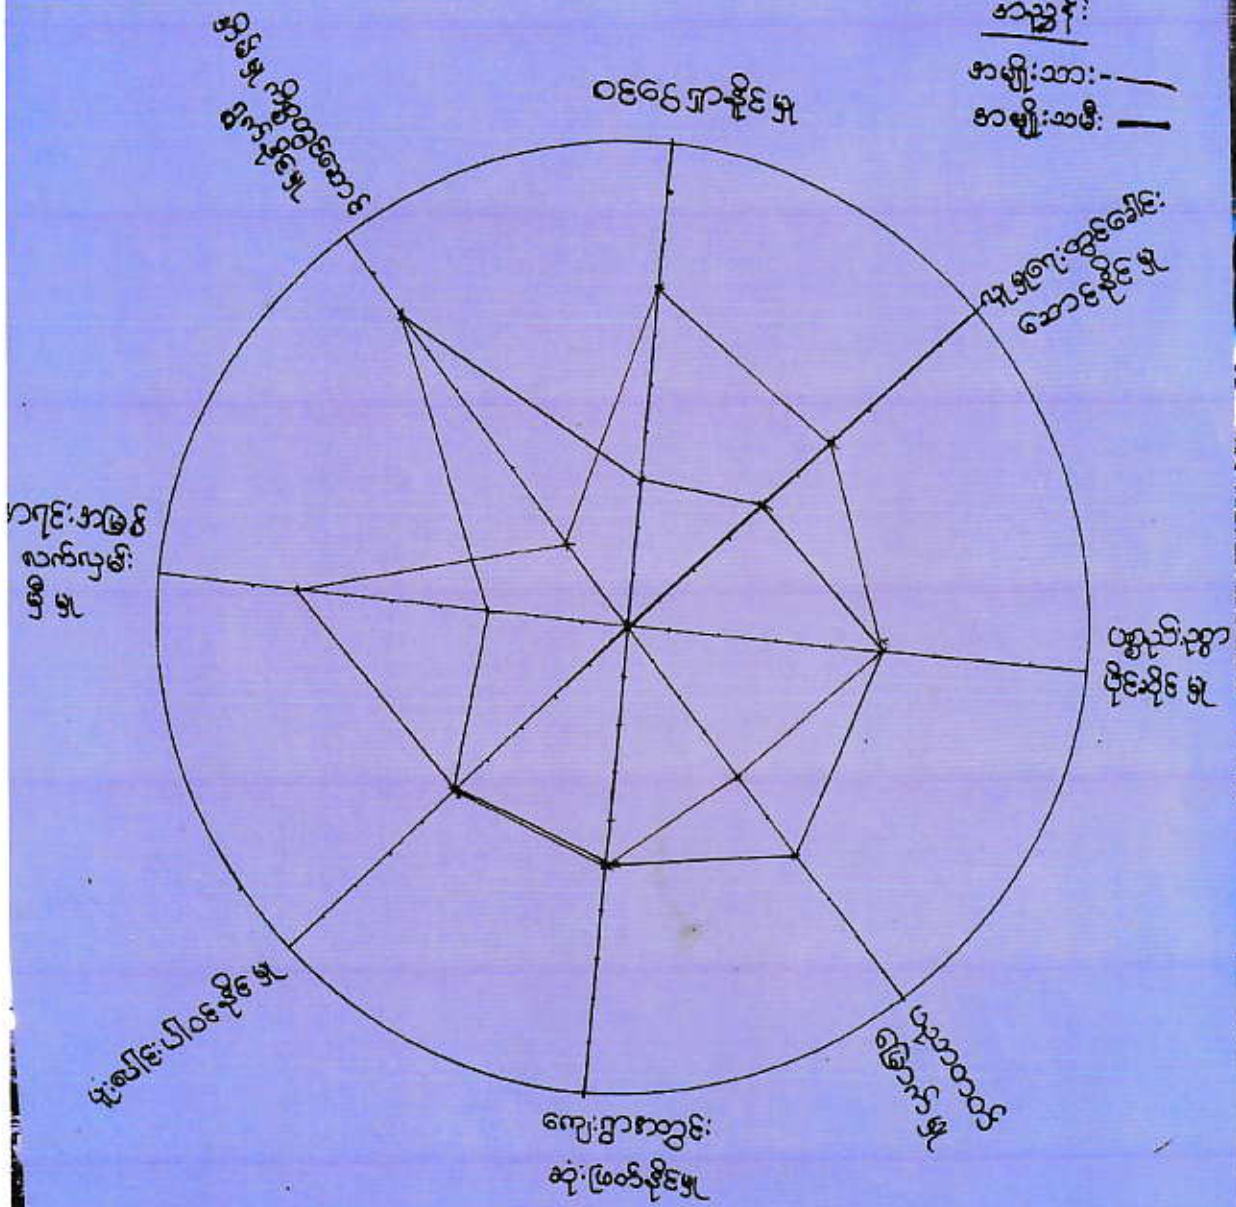 အညွှန်း
အမျိုးသား -
အမျိုးသမီး
ဝင်ငွေရှာနိုင်မှု
လူမှုရေးတွင်ခေါင်း
ဆောင်နိုင်မှု
ပစ္စည်းဥစ္စာ
ပိုင်ဆိုင်မှု
ပညာတတ်
မြောက်မှု
ကျေးရွာအတွင်း
ဆုံးဖြတ်နိုင်မှု
ပူးပေါင်းပါဝင်နိုင်မှု
အရင်းအမြစ်
လက်လှမ်း
မှီမှု
အိမ်မှုကိစ္စတွင်ဆောင်
ရွက်နိုင်မှု